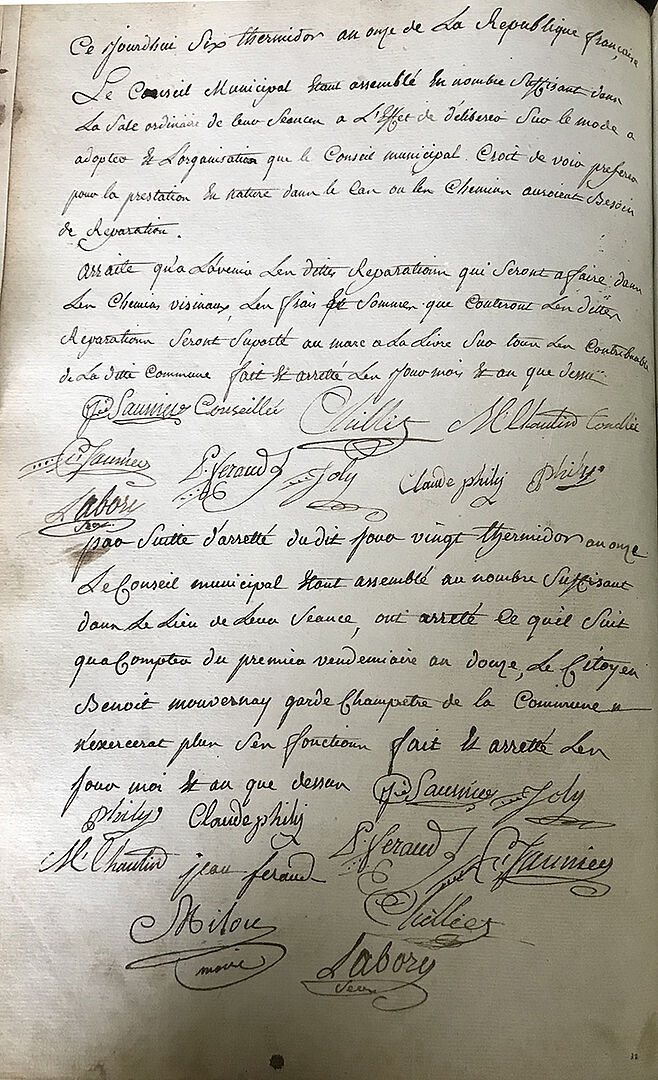 Ce jourdhui Six thermidor an onze de La Republique française
Le Conseil Municipal Etant assemblé En nombre Suffisant dans
La Sale ordinaire de leur Seances a L'Effet de deliberer Sur le mode a
adopter Et L'organisation que le Conseil municipal Croit de voir preferer
pour la prestation En nature dans le Cas ou les Chemins auroient Besoin
de Reparation.
arraite qu'a L'avenir Les dittes Reparations qui Seront a faire dans
Les Chemins visinaux, Les frais Et Sommes que Couteront Les dittes
Reparations Seront Suporté au marc a La Livre Sur tous Les Contribuable
de La ditte Commune fait Et arrette Les jour mois Et an que dessus
Saunier Conseillée Chilliet M. Chautin Conellée
Saunier P. Feraud Joly Claude phily phily
Labory
Secre
par Suitte d'arretté dudit jour vingt thermidor an onze
Le Conseil municipal Etant assemblé au nombre Suffisant
dans Le Lieu de Leur Seance, ont arreté Ce qu'il Suit
qua Compter du premier vendemiaire an douze, Le Citoyen
Benoit mouvernay garde Champetre de la Commune n
n'exercerat plus Ses fonctions fait Et arretté Les
jour moi Et an que dessus Saunier Joly
phily Claude phily
M. Chautin jean feraud P. Feraud Saunier
Milou Chilliet
maire Labory
Secre